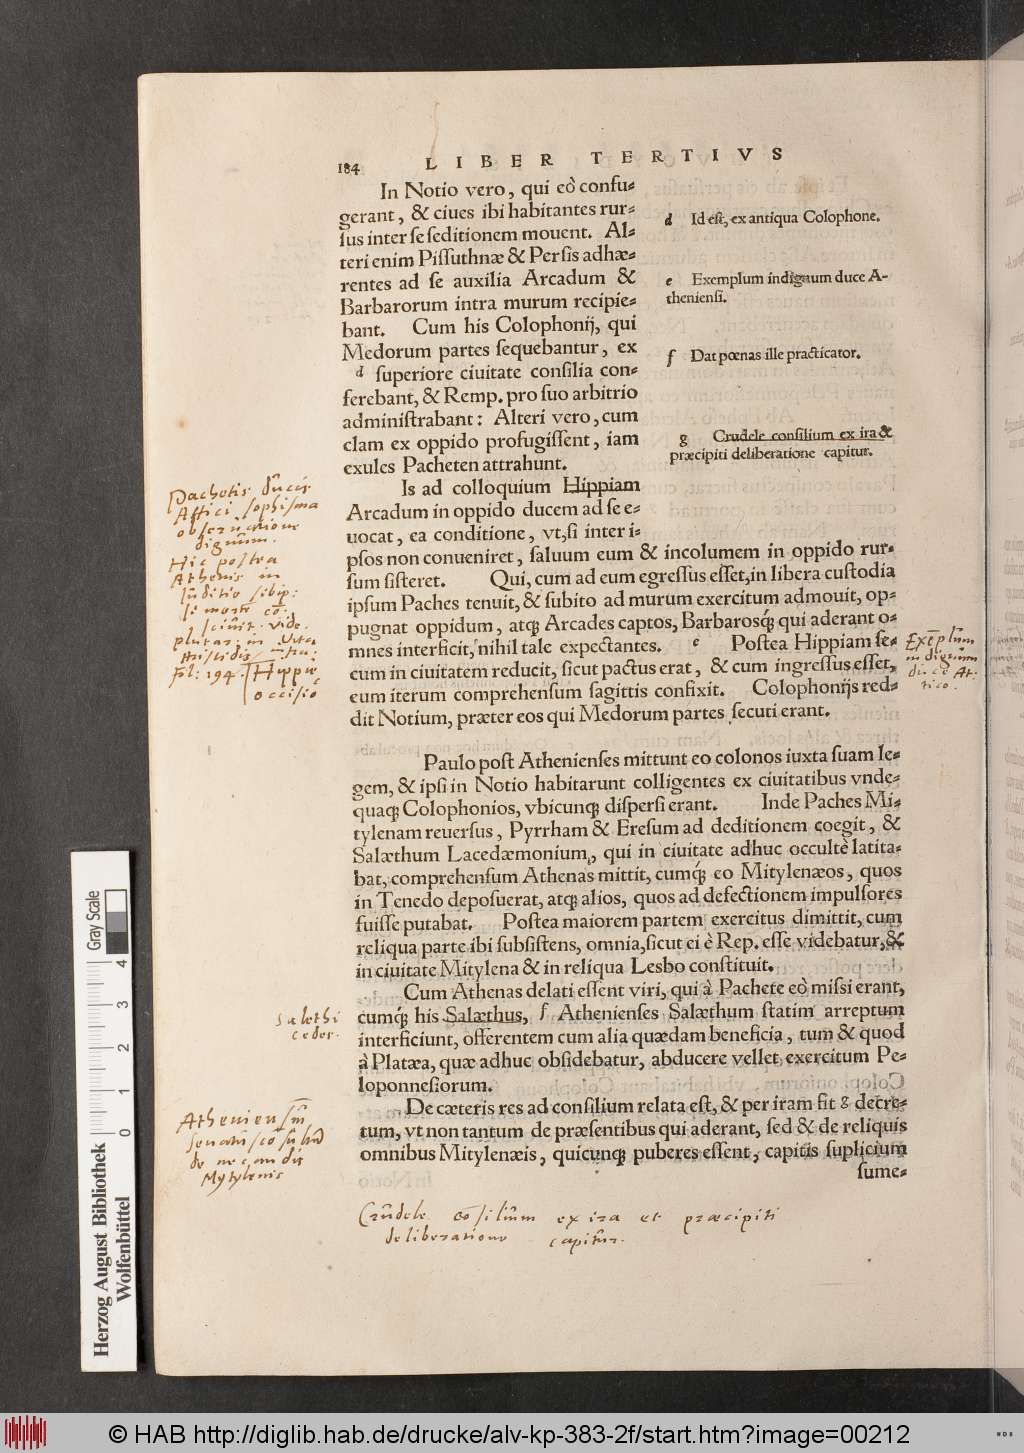 184 LIBER TERTIVS
In Notio vero, qui eò confu-
gerant, & ciues ibi habitantes rur-
sus inter se seditionem mouent. Al-
teri enim Pissuthnæ & Persis adhæ-
rentes ad se auxilia Arcadum &
Barbarorum intra murum recipie-
bant. Cum his Colophonij, qui
Medorum partes sequebantur, ex
d superiore ciuitate consilia con-
ferebant, & Remp. pro suo arbitrio
administrabant: Alteri vero, cum
clam ex oppido profugissent, iam
exules Pacheten attrahunt.
d Id est, ex antiqua Colophone.
e Exemplum indignum duce A-
theniensi.
f Dat pœnas ille practicator.
g Crudele consilium ex ira &
præcipiti deliberatione capitur.
Is ad colloquium Hippiam
Arcadum in oppido ducem ad se e-
uocat, ea conditione, vt, si inter i-
psos non conueniret, saluum eum & incolumem in oppido rur-
sum sisteret. Qui, cum ad eum egressus esset, in libera custodia
ipsum Paches tenuit, & subito ad murum exercitum admouit, op-
pugnat oppidum, atq; Arcades captos, Barbarosq́; qui aderant o-
mnes interficit, nihil tale expectantes. e Postea Hippiam se-
cum in ciuitatem reducit, sicut pactus erat, & cum ingressus esset,
eum iterum comprehensum sagittis confixit. Colophonijs red-
dit Notium, præter eos qui Medorum partes secuti erant.
Paulo post Athenienses mittunt eo colonos iuxta suam le-
gem, & ipsi in Notio habitarunt colligentes ex ciuitatibus vnde-
quaq; Colophonios, vbicunq; dispersi erant. Inde Paches Mi-
tylenam reuersus, Pyrrham & Eresum ad deditionem coegit, &
Salæthum Lacedæmonium, qui in ciuitate adhuc occultè latita-
bat, comprehensum Athenas mittit, cumq́; eo Mitylenæos, quos
in Tenedo deposuerat, atq; alios, quos ad defectionem impulsores
fuisse putabat. Postea maiorem partem exercitus dimittit, cum
reliqua parte ibi subsistens, omnia, sicut ei è Rep. esse videbatur, &
in ciuitate Mitylena & in reliqua Lesbo constituit.
Cum Athenas delati essent viri, qui à Pachete eò missi erant,
cumq́; his Salæthus, f Athenienses Salæthum statim arreptum
interficiunt, offerentem cum alia quædam beneficia, tum & quod
à Platæa, quæ adhuc obsidebatur, abducere vellet exercitum Pe-
loponnesiorum.
De cæteris res ad consilium relata est, & per iram fit g decre-
tum, vt non tantum de præsentibus qui aderant, sed & de reliquis
omnibus Mitylenæis, quicunq; puberes essent, capitis suplicium
sume-
Pachetis ducis
Attici sophisma
obseruatione
dignum.
Hic postea
Athenis in
iuditio sibip:
se mortē cō:
sciuit. vide.
plutar: in vita
Aristidis
fol: 194. Hippiæ
occisio
Exeplum
indignum
duce At-
tico.
Salethi
cedes.
Atheniensiū
senatus cosultū
de necandis
Mytylenis
Crudele cōsilium ex ira et præcipiti
deliberatione capitur.
Herzog August Bibliothek
Wolfenbüttel
0 1 2 3 4
Gray Scale
© HAB http://diglib.hab.de/drucke/alv-kp-383-2f/start.htm?image=00212